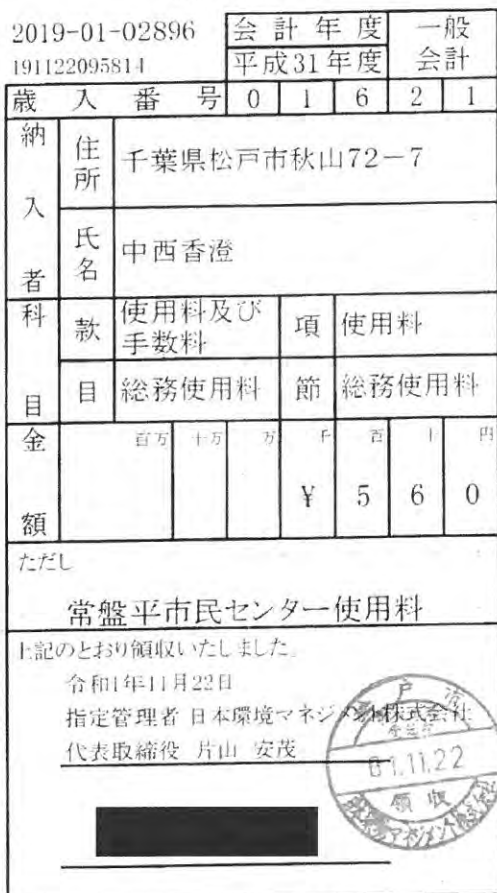 2019-01-02896
191122095814
会計年度
平成31年度
一般
会計
歳入番号 0 1 6 2 1
納入者
住所
千葉県松戸市秋山72-7
氏名
中西香澄
科目
款
使用料及び
手数料
項
使用料
目
総務使用料
節
総務使用料
金額
百万 十万 万 千 百 十 円
¥ 5 6 0
ただし
常盤平市民センター使用料
上記のとおり領収いたしました。
令和1年11月22日
指定管理者 日本環境マネジメント株式会社
代表取締役 片山 安茂
戸市
01.11.22
領収